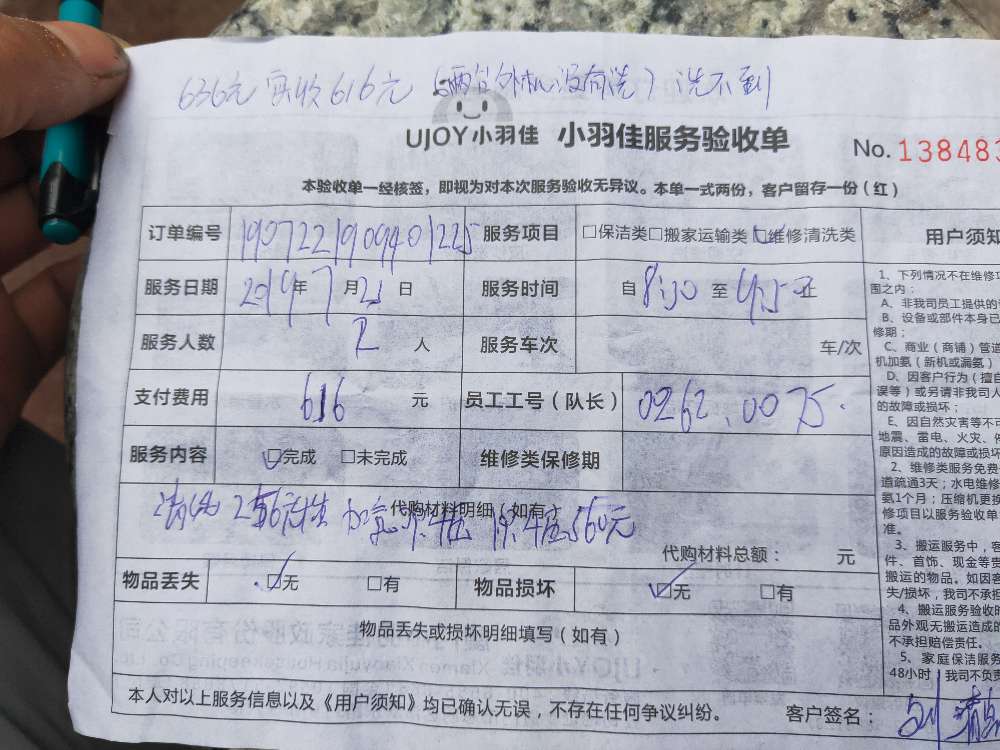 636元 实收616元（两台外机没有洗）洗不到
UJOY小羽佳 小羽佳服务验收单
No. 138483
本验收单一经核签，即视为对本次服务验收无异议。本单一式两份，客户留存一份（红）
订单编号 1907221909401225 服务项目 □保洁类□搬家运输类□维修清洗类
服务日期 2019年7月23日 服务时间 自8:30至
服务人数 2人 服务车次 车/次
支付费用 616元 员工工号（队长） 0262.0075.
服务内容 □完成 □未完成 维修类保修期
代购材料明细（如有
加氨 560元
代购材料总额： 元
物品丢失 □无 □有 物品损坏 □无 □有
物品丢失或损坏明细填写（如有）
本人对以上服务信息以及《用户须知》均已确认无误，不存在任何争议纠纷。 客户签名：
用户须知
1、下列情况不在维修项
围之内：
A、非我司员工提供的
B、设备或部件本身已
修期；
C、商业（商铺）管道
机加氨（新机或漏氨）
D、因客户行为（擅自
误等）或另请非我司人
的故障或损坏；
E、因自然灾害等不可
地震、雷电、火灾、
原因造成的故障或损坏
2、维修类服务免费
道疏通3天；水电维修
氨1个月；压缩机更换
修项目以服务验收单
准。
3、搬运服务中，客
件、首饰、现金等贵
搬运的物品。如因客
失/损坏，我司不承担
4、搬运服务验收时
品外观无搬运造成的
不承担赔偿责任。
5、家庭保洁服务
48小时，我司不负责